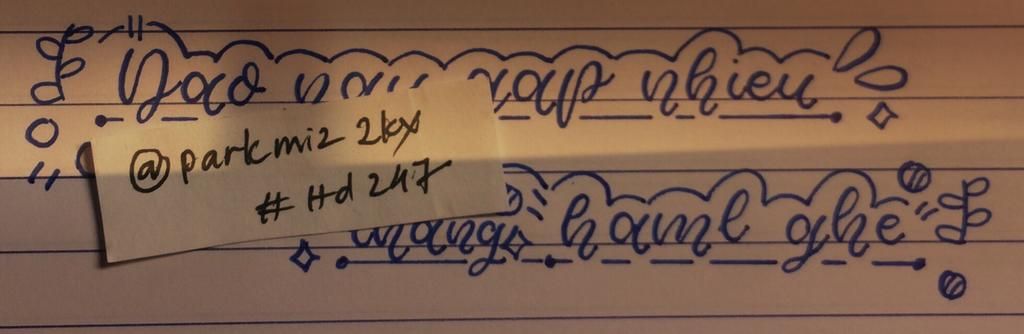 Dao nay xap nhieu
@parkmiz 2kx
# Hd 247
mang haml ghe